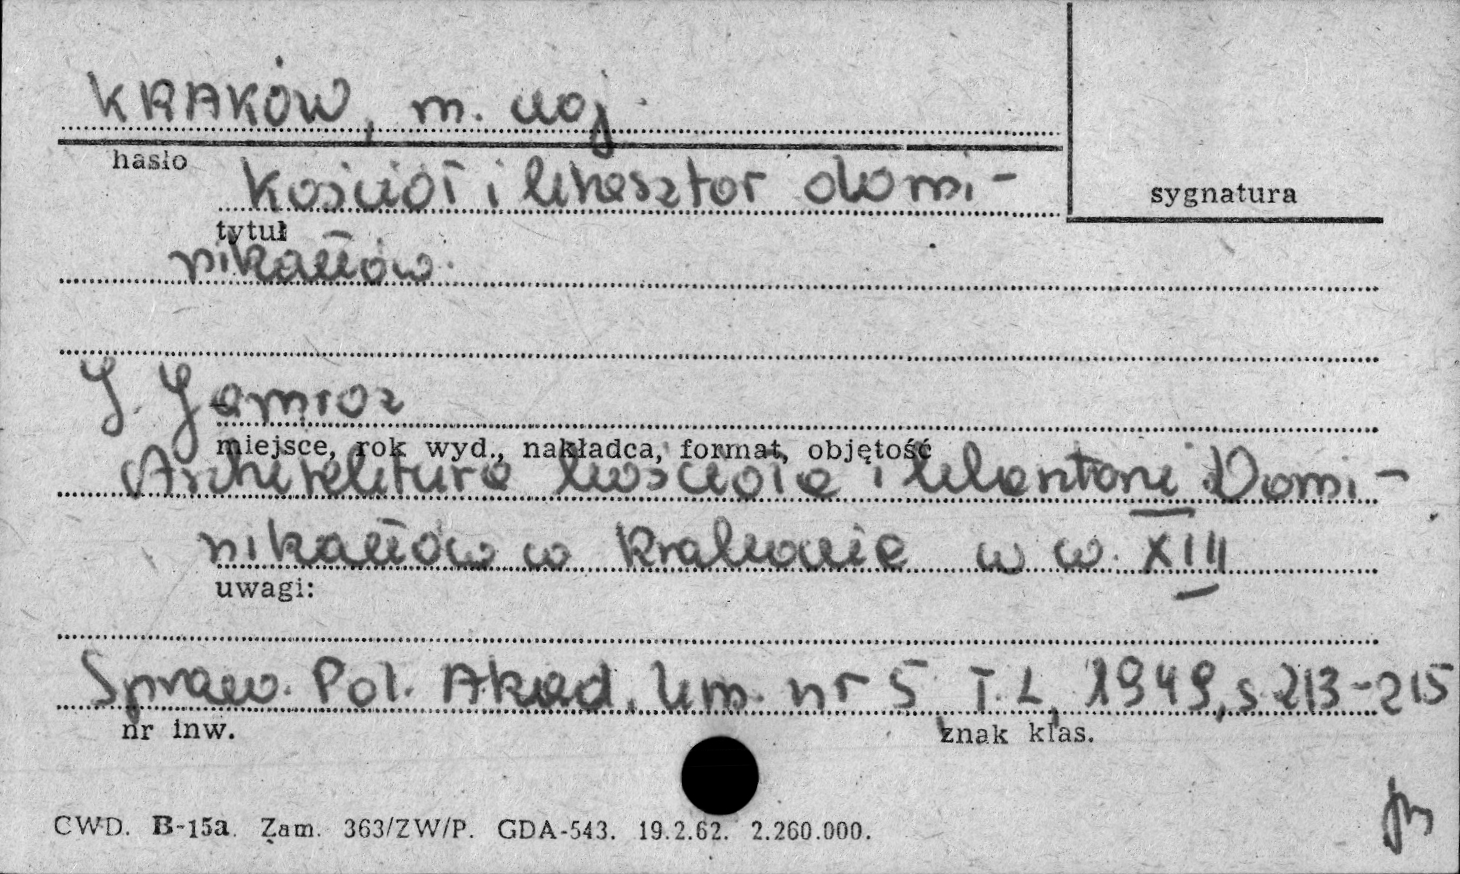 KRAKÓW, m. woj.
hasło
Kościół i klasztor domi-
sygnatura
tytuł
nikanów.
J. Jamroz
miejsce, rok wyd., nakładca, format, objętość
Architektura kościoła i klasztoru Domi-
nikanów w Krakowie w w. XIII
uwagi:
Spraw. Pol. Akad. Um. nr 5 T. L, 1949, s 213-215
nr inw.
znak klas.
CWD. B-15a. Zam. 363/ZW/P. GDA-543. 19.2.62. 2.260.000.